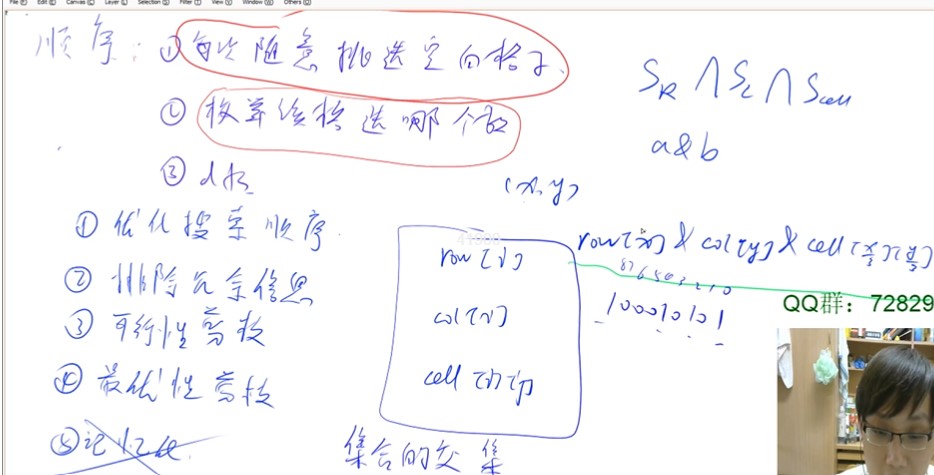 File Edit Canvas Layer Selection Filter View Window Others
顺序：① 每次随意挑选空白格子
② 枚举该格选哪个数
③ dfs
S_R ∩ S_C ∩ S_cell
a&b
(x, y)
① 优化搜索顺序.
② 排除冗余信息
③ 可行性剪枝
④ 最优性剪枝
⑤ 记忆化
row[i]
col[i]
cell[i][j]
集合的交集
row[x] & col[y] & cell[x/3][y/3]
876543210
100010101
QQ群：72829